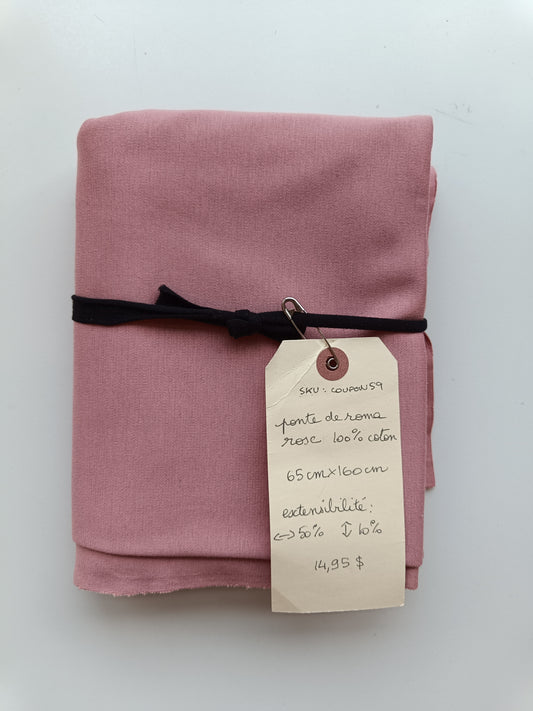 SKU: COUPON59
ponte de roma
rose 100% coton
65cm×160cm
extensibilité:
↔50% ↕10%
14,95 $